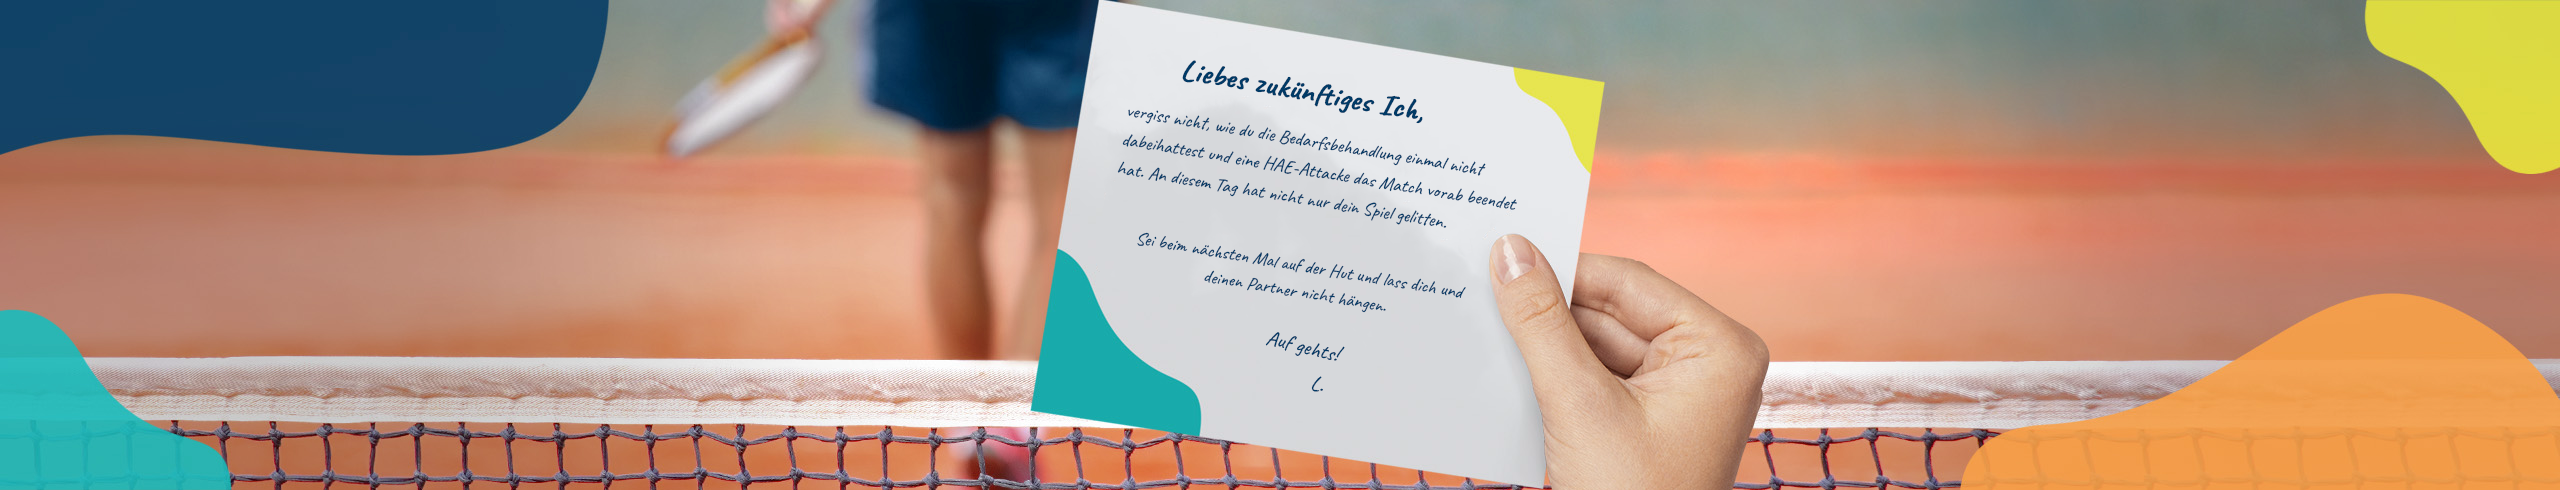 Liebes zukünftiges Ich,
vergiss nicht, wie du die Bedarfsbehandlung einmal nicht
dabeihattest und eine HAE-Attacke das Match vorab beendet
hat. An diesem Tag hat nicht nur dein Spiel gelitten.
Sei beim nächsten Mal auf der Hut und lass dich und
deinen Partner nicht hängen.
Auf gehts!
L.